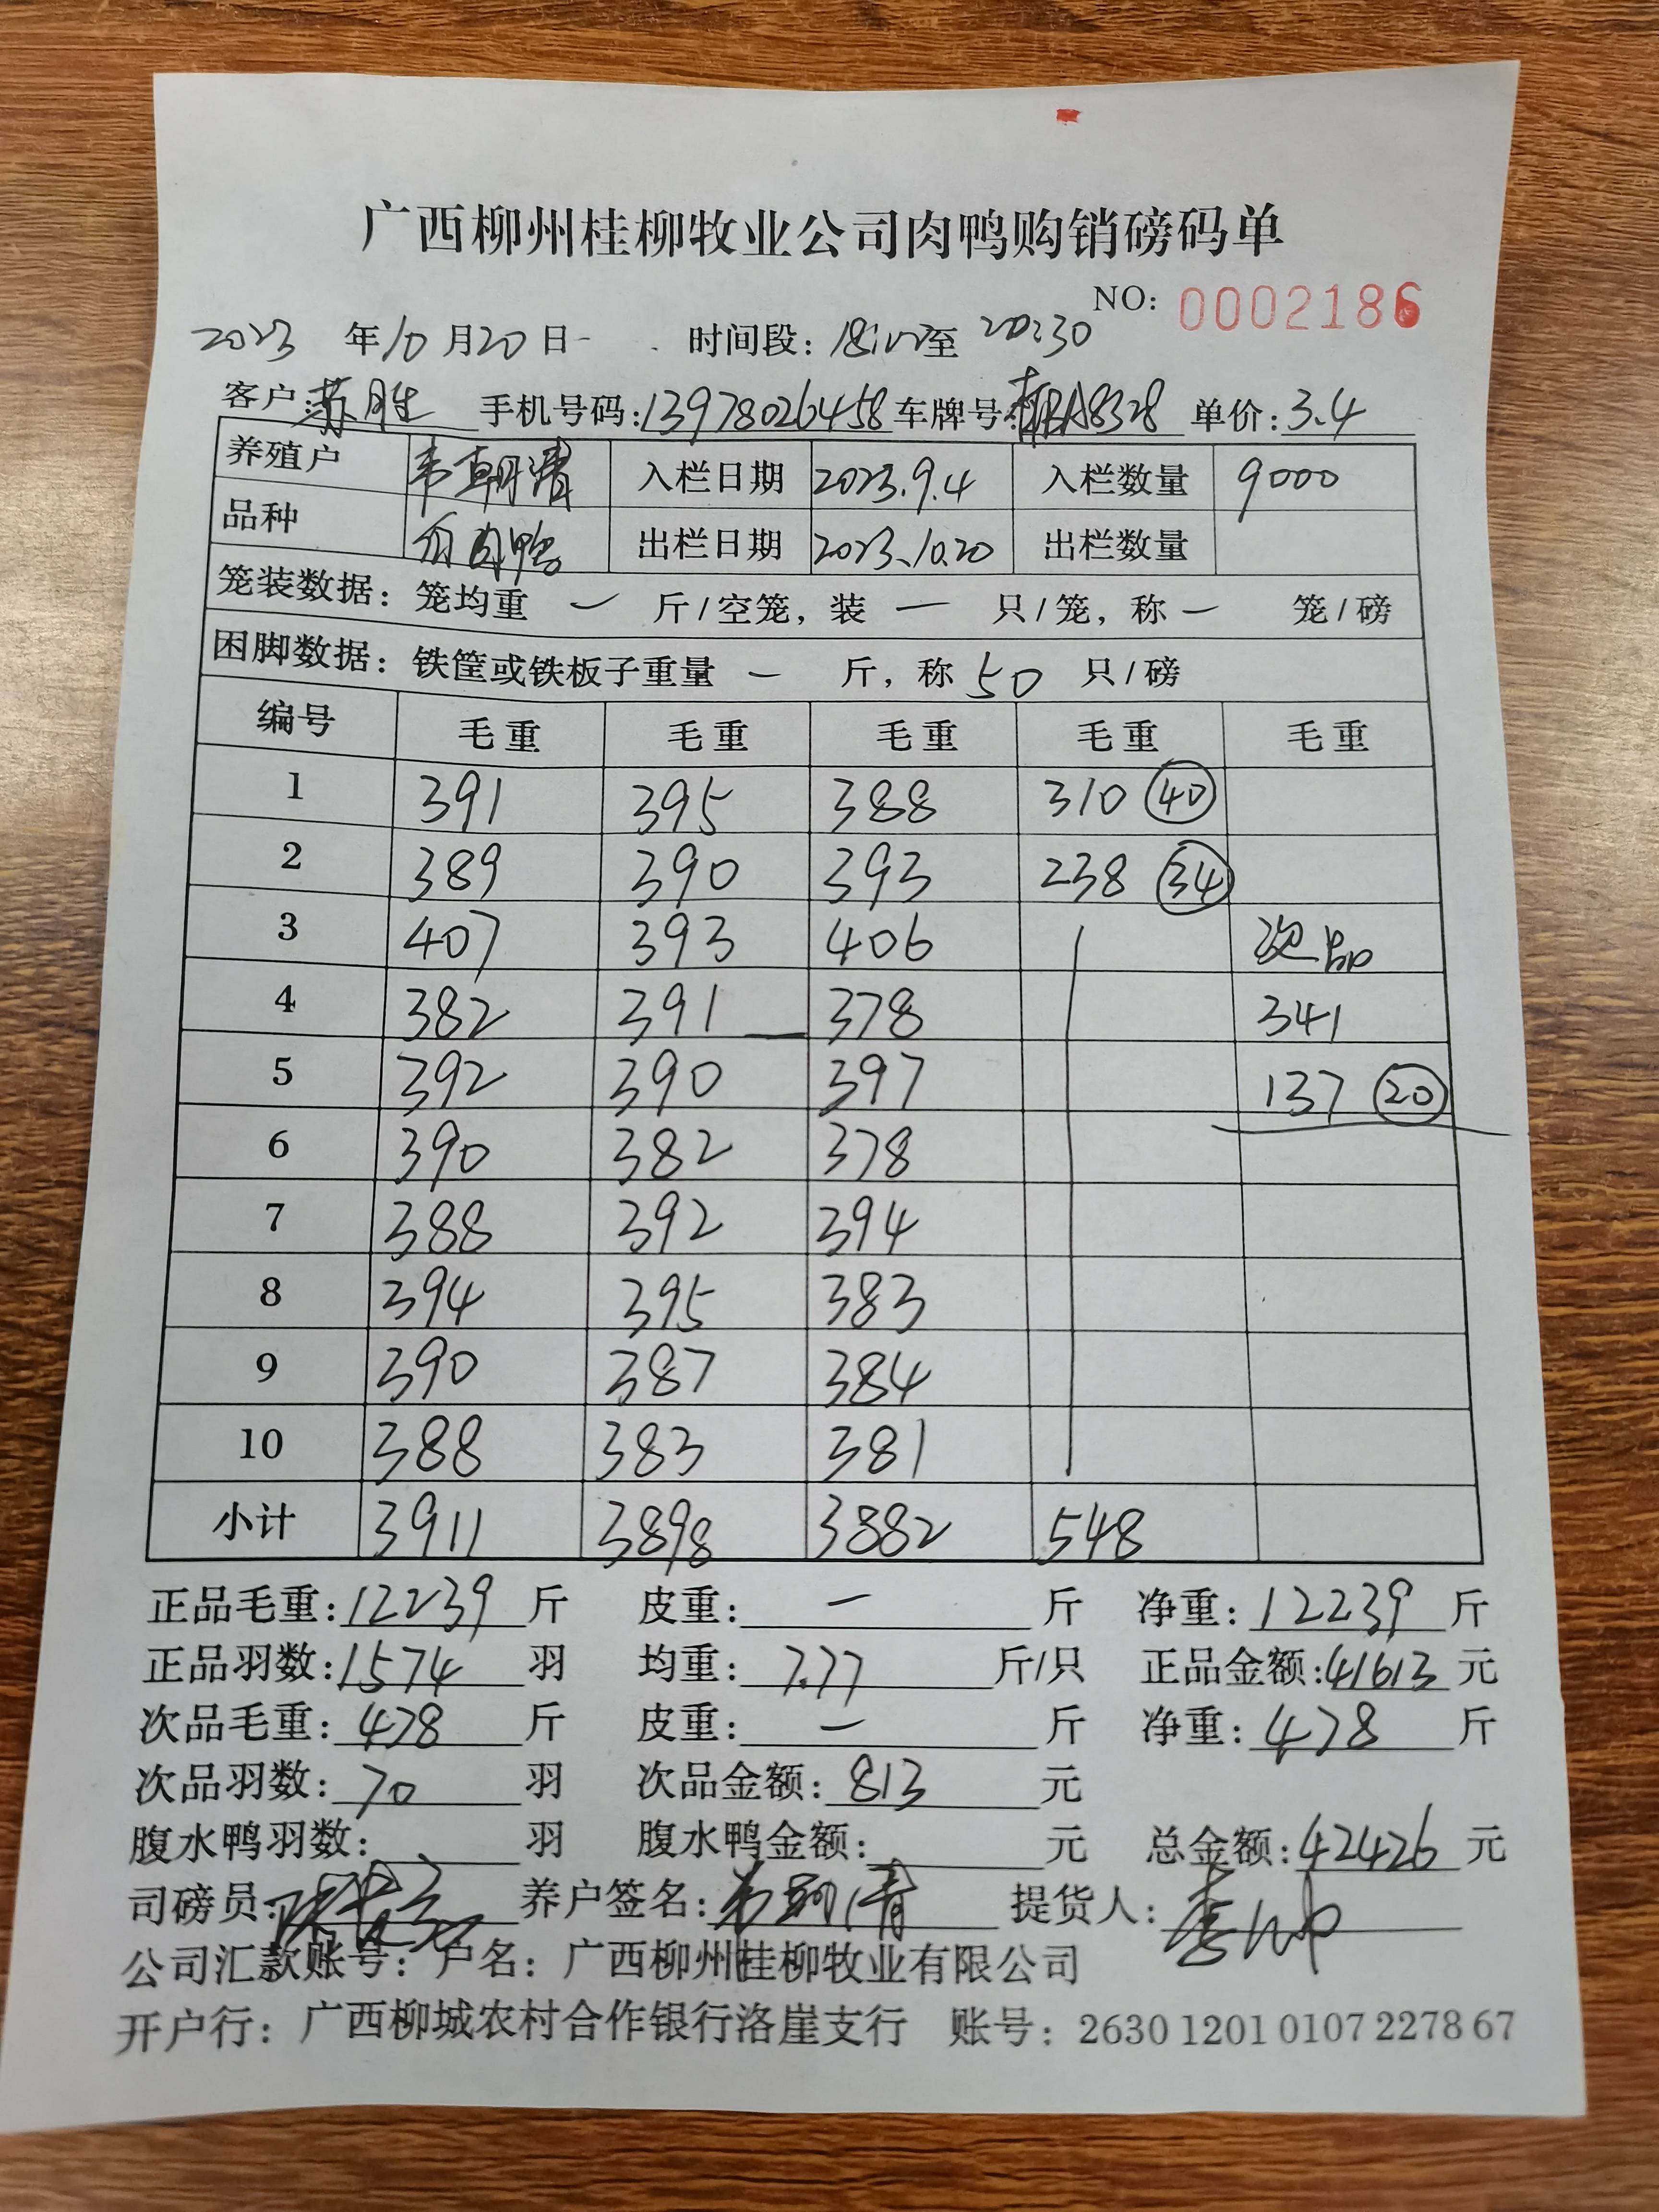 广西柳州桂柳牧业公司肉鸭购销磅码单
NO: 0002186
2023 年 10 月 20 日 时间段: 18:00 至 20:30
客户: 苏胜 手机号码: 13978026458 车牌号: A8328 单价: 3.4
养殖户 韦朝清 入栏日期 2023.9.4 入栏数量 9000
品种 肉鸭 出栏日期 2023.10.20 出栏数量
笼装数据: 笼均重 一 斤/空笼, 装 一 只/笼, 称 一 笼/磅
困脚数据: 铁筐或铁板子重量 一 斤, 称 50 只/磅
编号 毛重 毛重 毛重 毛重 毛重
1 391 395 388 310 40
2 389 390 393 238 34
3 407 393 406 次品
4 382 391 378 341
5 392 390 397 137 20
6 390 382 378
7 388 392 394
8 394 395 383
9 390 387 384
10 388 383 381
小计 3911 3898 3882 548
正品毛重: 12239 斤 皮重: 一 斤 净重: 12239 斤
正品羽数: 1574 羽 均重: 7.77 斤/只 正品金额: 41613 元
次品毛重: 478 斤 皮重: 一 斤 净重: 478 斤
次品羽数: 70 羽 次品金额: 813 元
腹水鸭羽数: 羽 腹水鸭金额: 元 总金额: 42426 元
司磅员: 养户签名: 韦朝清 提货人:
公司汇款账号: 户名: 广西柳州桂柳牧业有限公司
开户行: 广西柳城农村合作银行洛崖支行 账号: 2630 1201 0107 2278 67